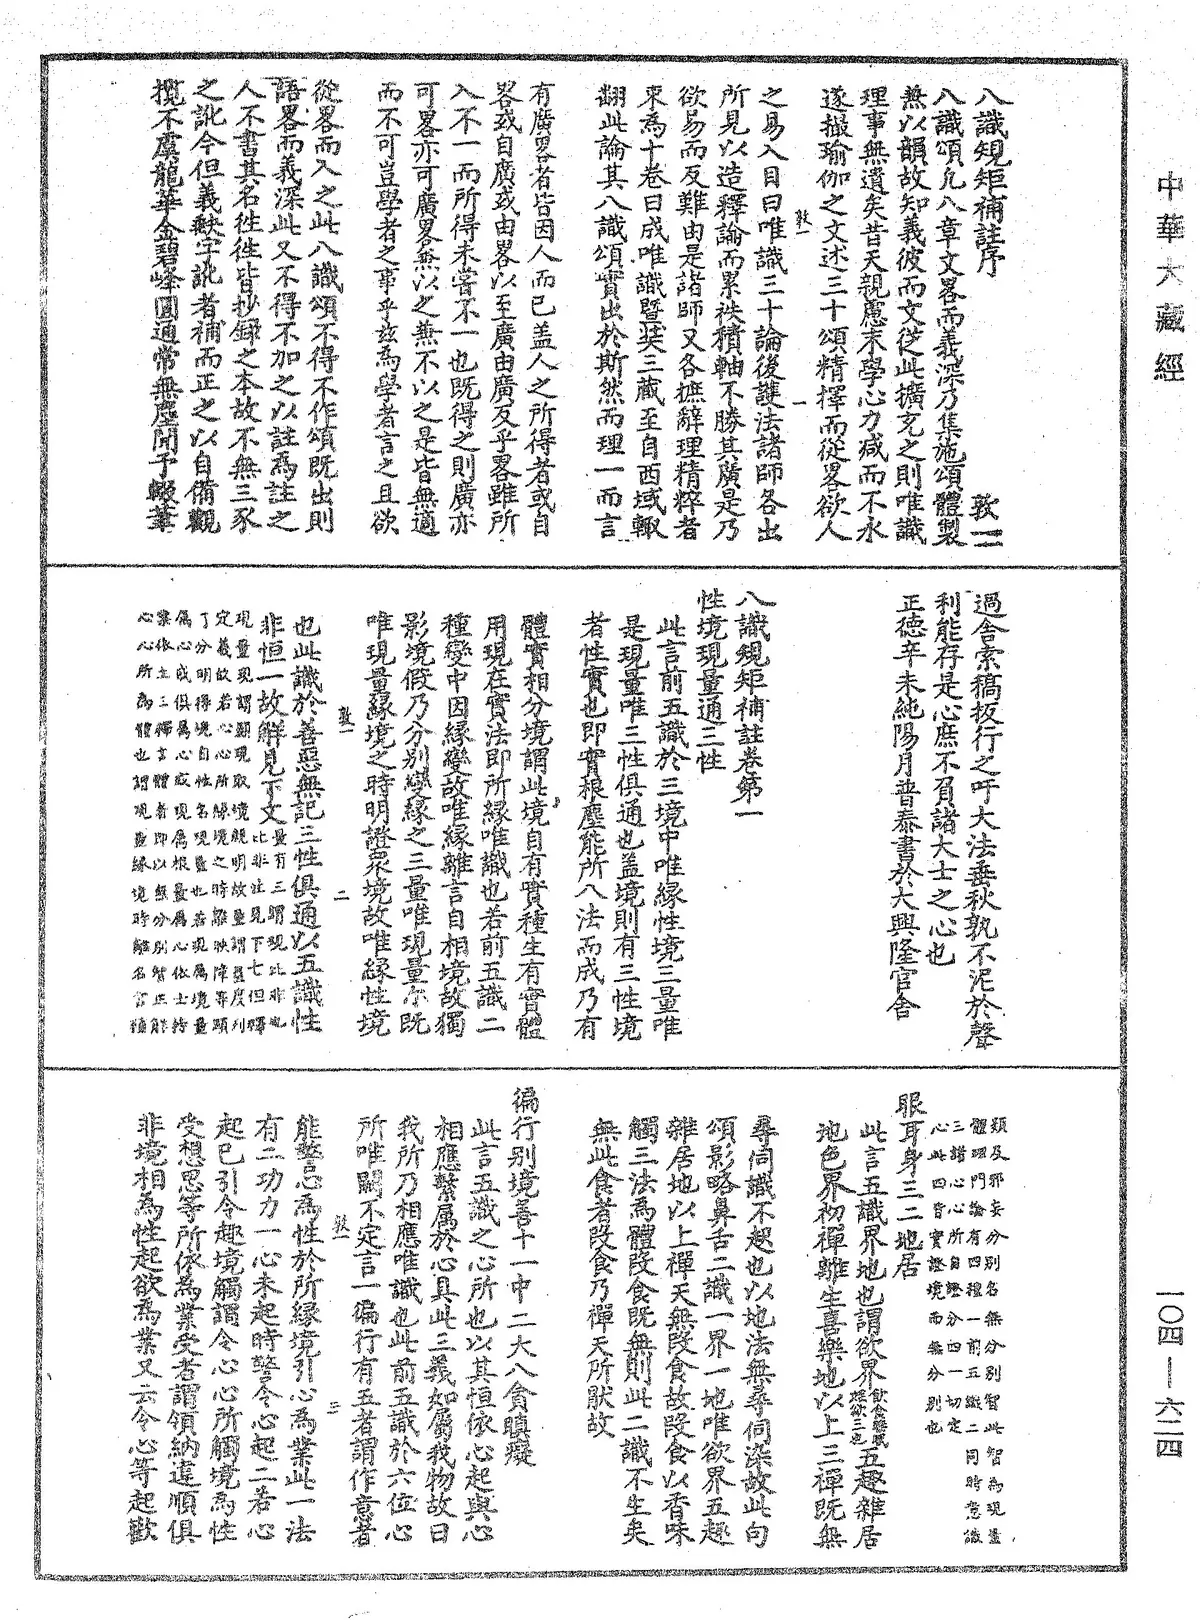 中華大藏經
八識規矩補註序
敦一
八識頌凡八章文畧而義深乃集施頌體製
無以韻故知義彼而文從此擴充之則唯識
理事無遺矣昔天親慮末學心力減而不永
遂撮瑜伽之文述三十頌精擇而從畧欲人
敦一
一
之易入目曰唯識三十論後護法諸師各出
所見以造釋論而累袟積軸不勝其廣是乃
欲易而反難由是諸師又各摭辭理精粹者
束為十卷曰成唯識暨奘三藏至自西域輙
翻此論其八識頌實出於斯然而理一而言
有廣畧者皆因人而已盖人之所得者或自
畧或自廣或由畧以至廣由廣反乎畧雖所
入不一而所得未嘗不一也既得之則廣亦
可畧亦可廣畧無以之無不以之是皆無適
而不可豈學者之事乎兹為學者言之且欲
從畧而入之此八識頌不得不作頌既出則
語畧而義深此又不得不加之以註為註之
人不書其名徃徃皆抄錄之本故不無三豕
之訛今但義缺字訛者補而正之以自備觀
攬不虞龍華金碧峰圓通常無塵聞予輟葺
過舍索稿扳行之吁大法垂秋孰不泥於聲
利能存是心庶不負諸大士之心也
正德辛未純陽月普泰書於大興隆官舍
八識規矩補註卷第一
性境現量通三性
此言前五識於三境中唯緣性境三量唯
是現量唯三性俱通也盖境則有三性境
者性實也即實根塵能所八法而成乃有
體實相分境謂此境自有實種生有實體
用現在實法即所緣唯識也若前五識二
種變中因緣變故唯緣離言自相境故獨
影境假乃分別變緣之三量唯現量尔既
唯現量緣境之時明證衆境故唯緣性境
敦一
二
也此識於善惡無記三性俱通以五識性
非恒一故解見下文量有三謂現比非也
比非注見下七但釋
現量現謂顯現取境親明故量謂量度列
定義故若心心所緣境之時離映障等顯
了分明得境自性名現量也若現屬境量
屬心或俱屬心或現屬根量屬心依士持
業依主三釋言體者即以無分別智正能
心心所為體也謂現量緣境時離名言種
類及邪妄分別名無分別智此智為現量
體理門論有四種一前五識二同時意識
三諸心心所自證分四一切定
心此四皆實證境而無分別也
眼耳身三二地居
此言五識界地也謂欲界飲食睡眠婬欲三也五趣雜居
地色界初禪離生喜樂地以上三禪既無
尋伺識不起也以地法無尋伺染故此句
頌影略鼻舌二識一界一地唯欲界五趣
雜居地以上禪天無段食故段食以香味
觸三法為體段食既無則此二識不生矣
無此食者段食乃禪天所猒故
徧行別境善十一中二大八貪瞋癡
此言五識之心所也以其恒依心起與心
相應繫屬於心具此三義如屬我物故曰
我所乃相應唯識也此前五識於六位心
所唯闕不定言一徧行有五者謂作意者
敦一
三
能警心為性於所緣境引心為業此一法
有二功力一心未起時警令心起二若心
起已引令趣境觸謂令心心所觸境為性
受想思等所依為業受者謂領納違順俱
非境相為性起欲為業又云令心等起歡
一〇四—六二四